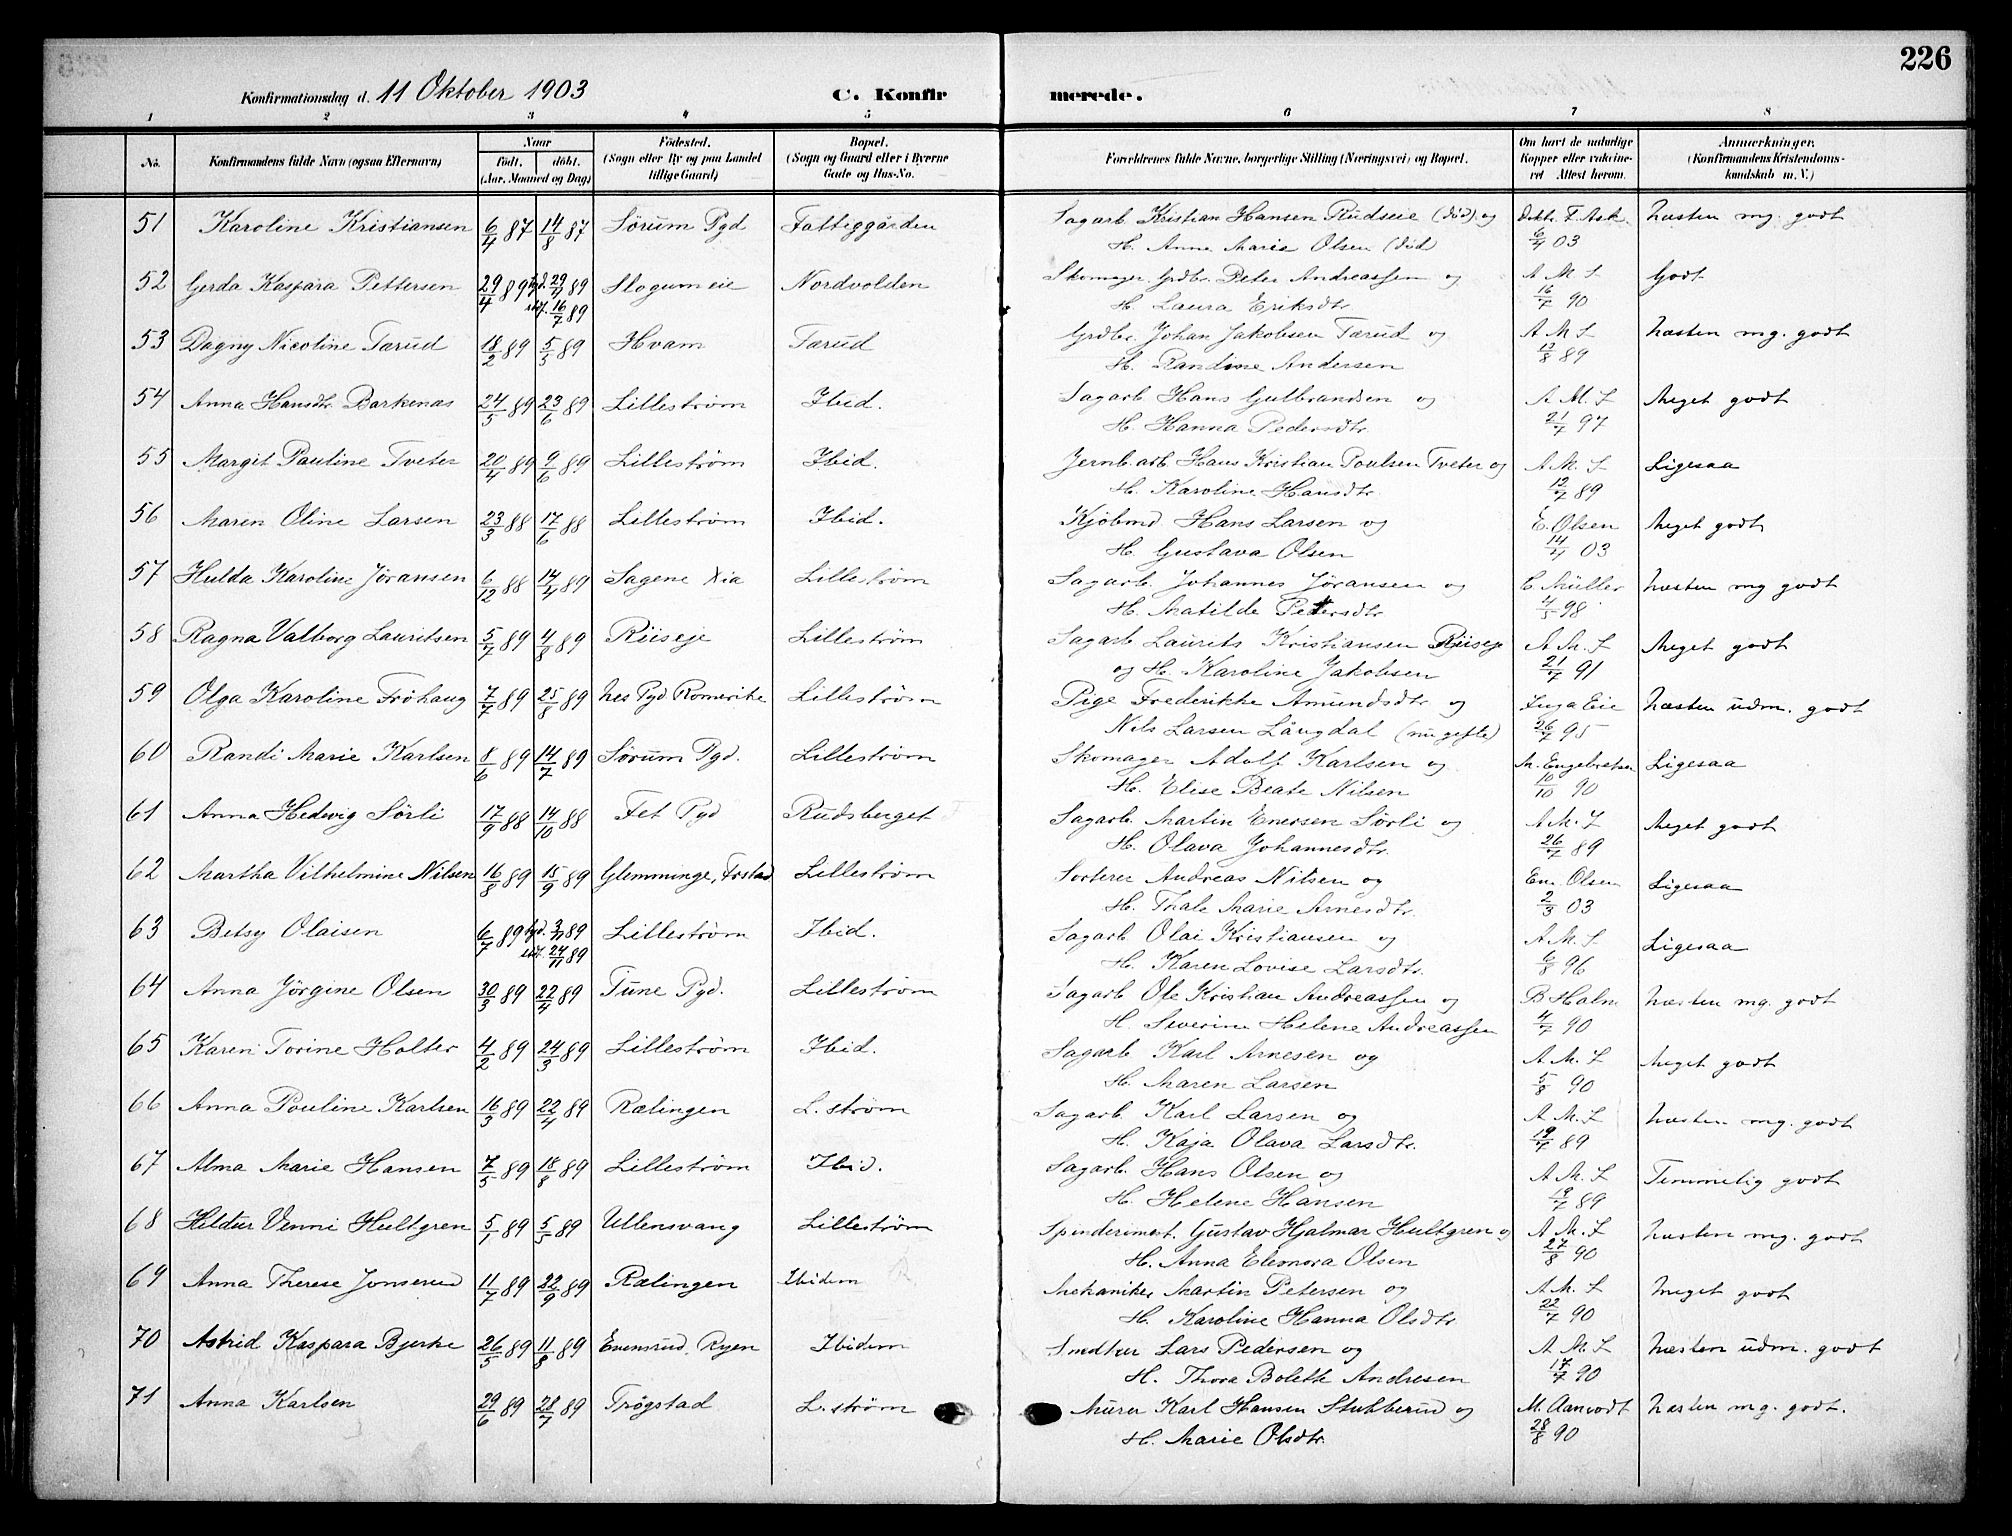 226
Konfirmationsdag d. 11 Oktober 1903 C. Konfirmerede.
1 2 3 4 5 6 7 8
No. Konfirmandens fulde Navn (ogsaa Efternavn) Naar født, døbt. (Aar, Maaned og Dag) Fødested. (Sogn eller By og paa Landet tillige Gaard) Bopæl. (Sogn og Gaard eller i Byerne Gade og Hus-No. Forældrenes fulde Navne, borgerlige Stilling (Næringsvei) og Bopæl. Om havt de naturlige Kopper eller vaccineret Attest herom. Anmærkninger. (Konfirmandens Kristendomskundskab m. V.)
51 Karoline Kristiansen 6/4 87 14/8 87 Sørum Pgd Fattiggården Sagarb. Kristian Hansen Rudseie (død) og Dokt. F. Ask næsten mg. godt
H. Anne Marie Olsen (død) 6/4 03
52 Gerda Kaspara Pettersen 29/4 89 hjd. 29/4 89 Slogum eie Nordvolden Skomager, Grdbr. Peter Andreassen og A M L Godt
stf. 16/7 89 H. Laura Eriksdtr. 16/7 90
53 Dagny Nicoline Tærud 18/2 89 5/5 89 Hvam Tærud Grdbr. Johan Jakobsen Tærud og A M L næsten mg. godt
H. Randine Andersen 13/8 89
54 Anna Hansdtr. Barkenæs 24/5 89 23/6 89 Lillestrøm Ibid. Sagarb Hans Gulbrandsen og A. M. L Meget godt
H. Hanna Pedersdtr. 21/7 97
55 Margit Pauline Tveter 20/4 89 9/6 89 Lillestrøm Ibid. Jernb.arb. Hans Kristian Poulsen Tveter og A M. L Ligesaa
H. Karoline Hansdtr. 12/7 89
56 Maren Oline Larsen 23/3 88 17/6 88 Lillestrøm Ibid. Kjøbmd Hans Larsen og E. Olsen Meget godt
H. Gustava Olsen 14/4 03
57 Hulda Karoline Jøransen 6/12 88 14/4 89 Sagene Xia Lillestrøm Sagarb. Johannes Jøransen og C. Müller næsten mg godt
H. Matilde Petersdtr 4/5 98
58 Ragna Valborg Lauritsen 5/7 89 4/8 89 Riiseje Lillestrøm Sagarb Laurits Kristiansen Riiseje A M. L Meget godt
og H. Karoline Jakobsen 21/7 91
59 Olga Karoline Frøhaug 7/7 89 25/8 89 Nes Pgd Romerike Lillestrøm Pige Frederikke Amundsdtr og Inga Eie næsten udm. godt
Nils Larsen Långdal (nu gifte) 26/7 95
60 Randi Marie Karlsen 8/6 89 14/7 89 Sørum Pgd. Lillestrøm Skomager Adolf Karlsen og M. Engebretsen Ligesaa
H. Elise Beate Nilsen 10/10 90
61 Anna Hedevig Sørli 17/9 88 14/10 88 Fet Pgd Rudsberget Sagarb Martin Enersen Sørli og A M. L Meget godt
H. Olava Johannesdtr. 26/7 89
62 Martha Vilhelmine Nilsen 16/8 89 15/9 89 Glemminge, Frstad Lillestrøm Sorterer Andreas Nilsen og Em. Olsen Ligesaa
H. Thale Marie Arnesdtr. 2/3 03
63 Betsy Olaisen 6/7 89 hjd. 3/11 89 Lillestrøm Ibid. Sagarb Olai Kristiansen og A M. L Ligesaa
stf. 24/11 89 H. Karen Lovise Larsdtr. 6/8 96
64 Anna Jørgine Olsen 30/3 89 22/4 89 Tune Pgd. Lillestrøm Sagarb Ole Kristian Andreassen og B Holm næsten mg. godt
H. Severine Helene Andreassen 4/7 90
65 Karen Torine Holter 4/2 89 24/3 89 Lillestrøm Ibid. Sagarb Karl Arnesen og A M. L Meget godt
H. Maren Larsen 5/8 90
66 Anna Pouline Karlsen 16/3 89 22/4 89 Rælingen L. strøm Sagarb Karl Larsen og A M. L næsten mg. godt
H. Kaja Olava Larsdtr. 19/7 89
67 Alma Marie Hansen 7/5 89 18/8 89 Lillestrøm Ibid. Sagarb. Hans Olsen og A M. L Temmelig godt
H. Helene Hansen 19/7 89
68 Hildur Venni Hultgren 5/1 89 5/5 89 Ullensvang Lillestrøm Spinderimest. Gustav Hjalmar Hultgren og A M. L næsten mg. godt
H. Anna Eleonora Olsen 27/8 90
69 Anna Therese Jonserud 11/7 89 22/9 89 Rælingen Ibidem Mekaniker Martin Petersen og A M. L Meget godt
H. Karoline Hanna Olsdtr 22/7 90
70 Astrid Kaspara Bjerke 26/5 89 11/8 89 Evensrud, Ryen Ibidem Smedsv Lars Pedersen og A. M L næsten udm. godt
H. Thora Bolette Andresen 17/7 90
71 Anna Karlsen 29/6 89 28/7 89 Trøgstad L. strøm Murer Karl Hansen Stubberud og M. Aanvodt næsten mg. godt.
H. Marie Olsdtr. 28/8 90